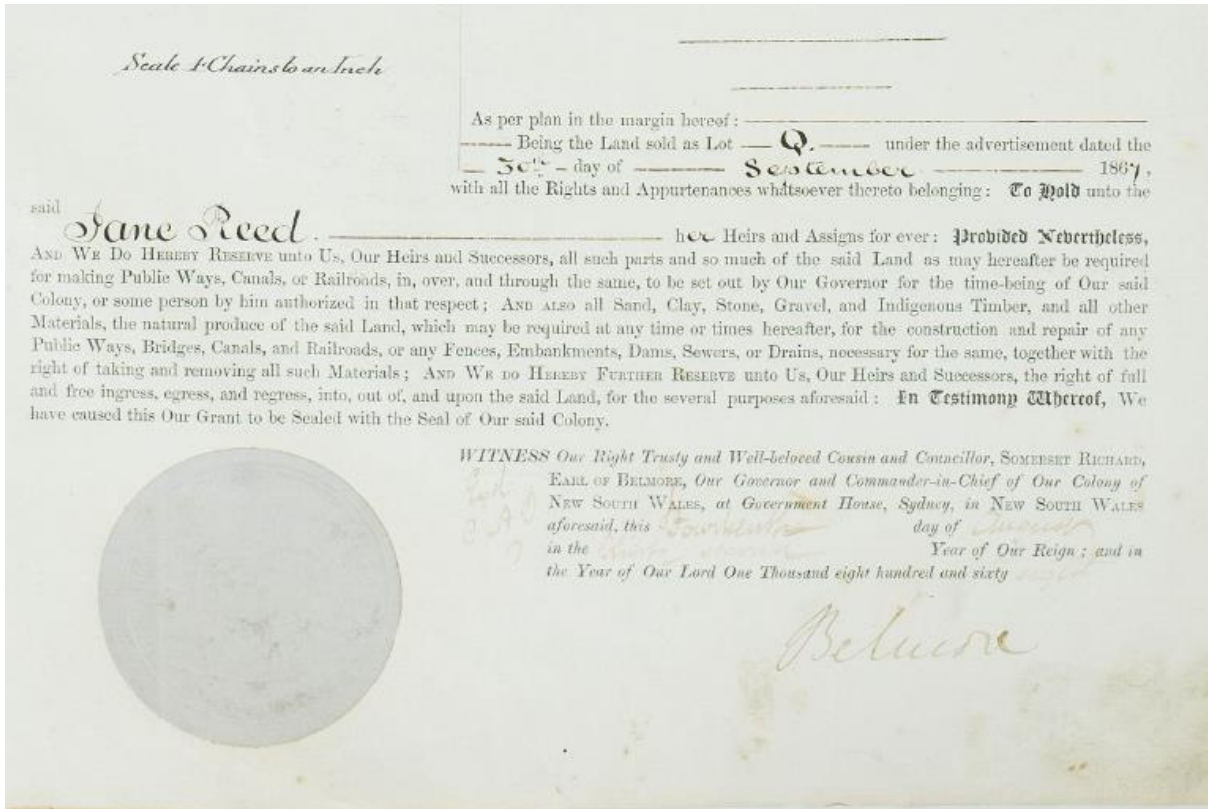 Scale 4 Chains to an Inch
As per plan in the margin hereof :
Being the Land sold as Lot Q. under the advertisement dated the
30th day of September 1867,
with all the Rights and Appurtenances whatsoever thereto belonging : To Hold unto the
said
Jane Reed. her Heirs and Assigns for ever : Provided Nevertheless,
AND WE DO HEREBY RESERVE unto Us, Our Heirs and Successors, all such parts and so much of the said Land as may hereafter be required
for making Public Ways, Canals, or Railroads, in, over, and through the same, to be set out by Our Governor for the time-being of Our said
Colony, or some person by him authorized in that respect ; AND ALSO all Sand, Clay, Stone, Gravel, and Indigenous Timber, and all other
Materials, the natural produce of the said Land, which may be required at any time or times hereafter, for the construction and repair of any
Public Ways, Bridges, Canals, and Railroads, or any Fences, Embankments, Dams, Sewers, or Drains, necessary for the same, together with the
right of taking and removing all such Materials ; AND WE DO HEREBY FURTHER RESERVE unto Us, Our Heirs and Successors, the right of full
and free ingress, egress, and regress, into, out of, and upon the said Land, for the several purposes aforesaid : In Testimony Whereof, We
have caused this Our Grant to be Sealed with the Seal of Our said Colony.
WITNESS Our Right Trusty and Well-beloved Cousin and Councillor, SOMERSET RICHARD,
EARL OF BELMORE, Our Governor and Commander-in-Chief of Our Colony of
NEW SOUTH WALES, at Government House, Sydney, in NEW SOUTH WALES
aforesaid, this day of August
in the Year of Our Reign ; and in
the Year of Our Lord One Thousand eight hundred and sixty eight
Belmore